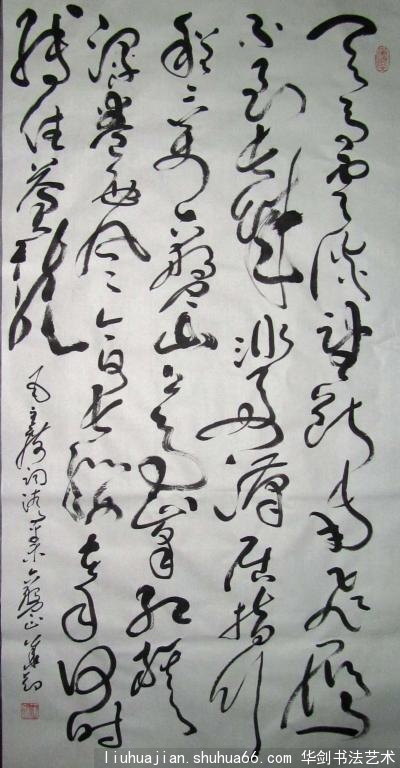 天高雲淡望断南飛雁
不到长城非好漢屈指行
程二万六盤山上高峰红旗
漫卷西风今日长缨在手何时
缚住苍龙
毛主席词清平乐六盤山 华剑
liuhuajian.shuhua66.com 华剑书法艺术